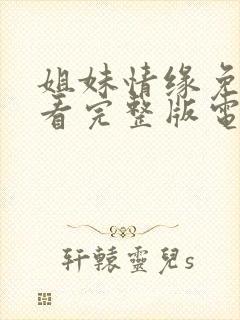 姐妹情缘免
看完整版電
轩辕靈兒s